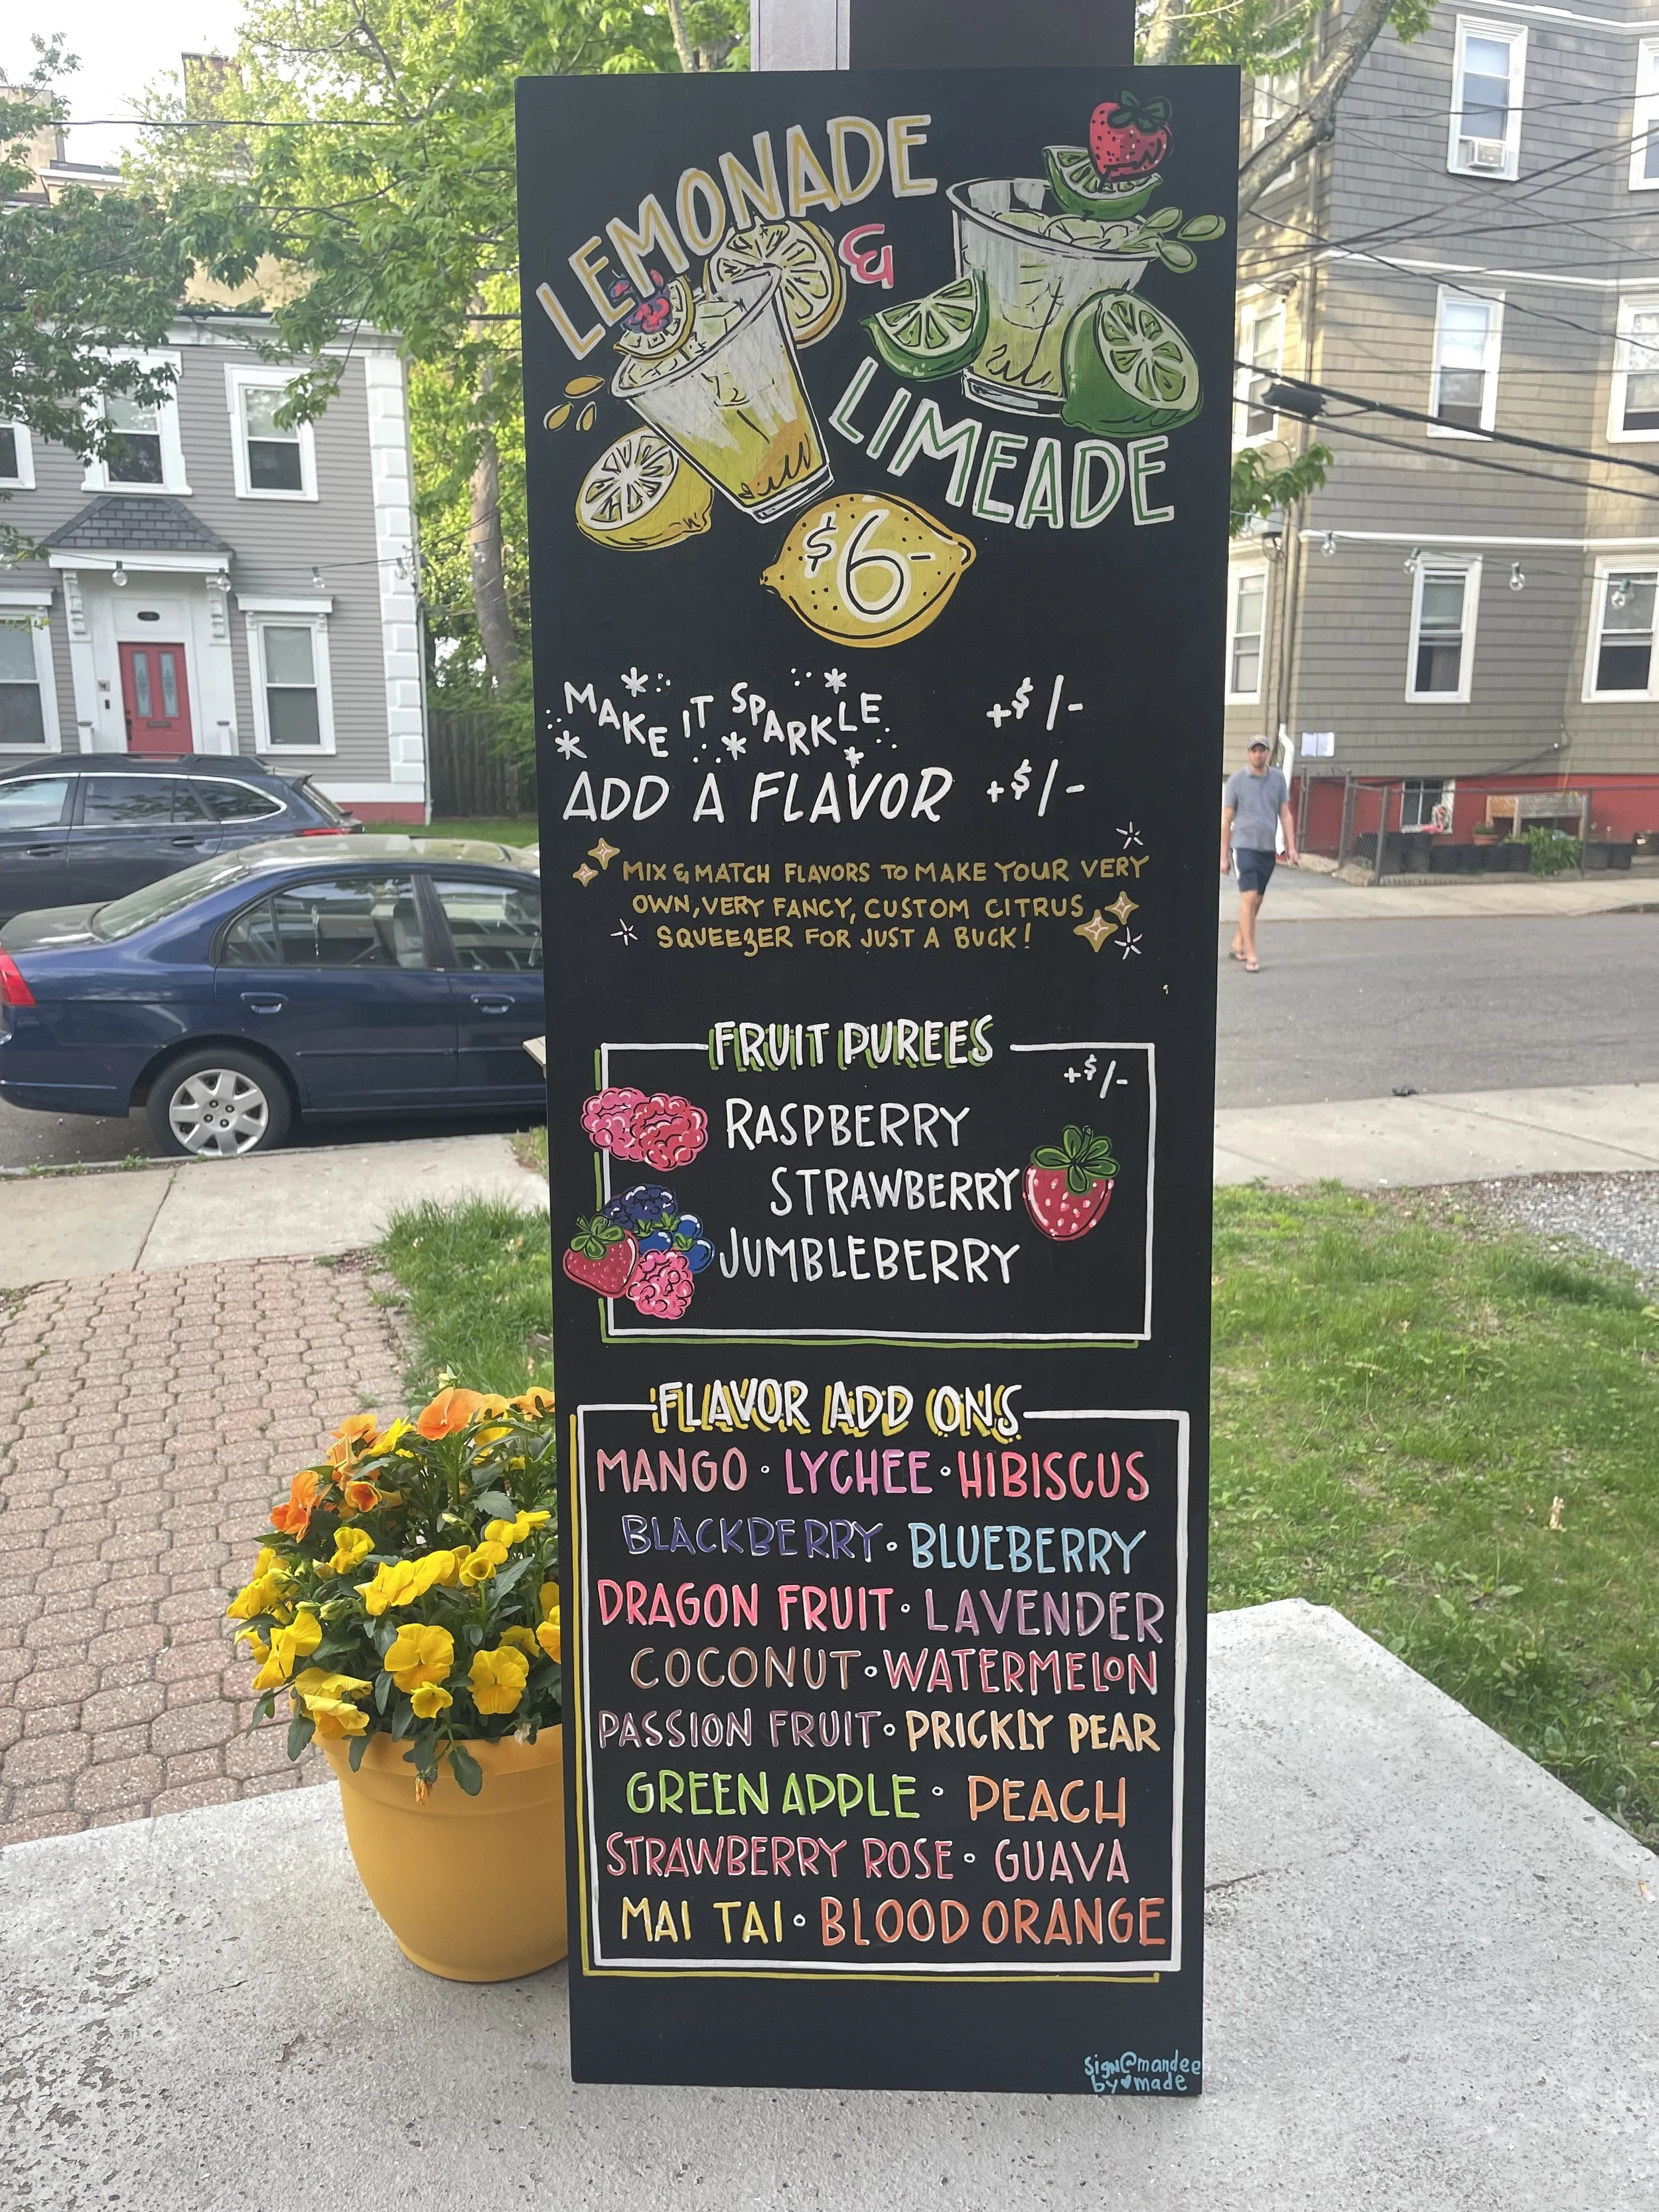 LEMONADE
&
LIMEADE
$6-
MAKE IT SPARKLE +$1-
ADD A FLAVOR +$1-
MIX & MATCH FLAVORS TO MAKE YOUR VERY
OWN, VERY FANCY, CUSTOM CITRUS
SQUEEZER FOR JUST A BUCK!
FRUIT PUREES
+$1-
RASPBERRY
STRAWBERRY
JUMBLEBERRY
FLAVOR ADD ONS
MANGO • LYCHEE • HIBISCUS
BLACKBERRY • BLUEBERRY
DRAGON FRUIT • LAVENDER
COCONUT • WATERMELON
PASSION FRUIT • PRICKLY PEAR
GREEN APPLE • PEACH
STRAWBERRY ROSE • GUAVA
MAI TAI • BLOOD ORANGE
sign @mandee
by ♥ made